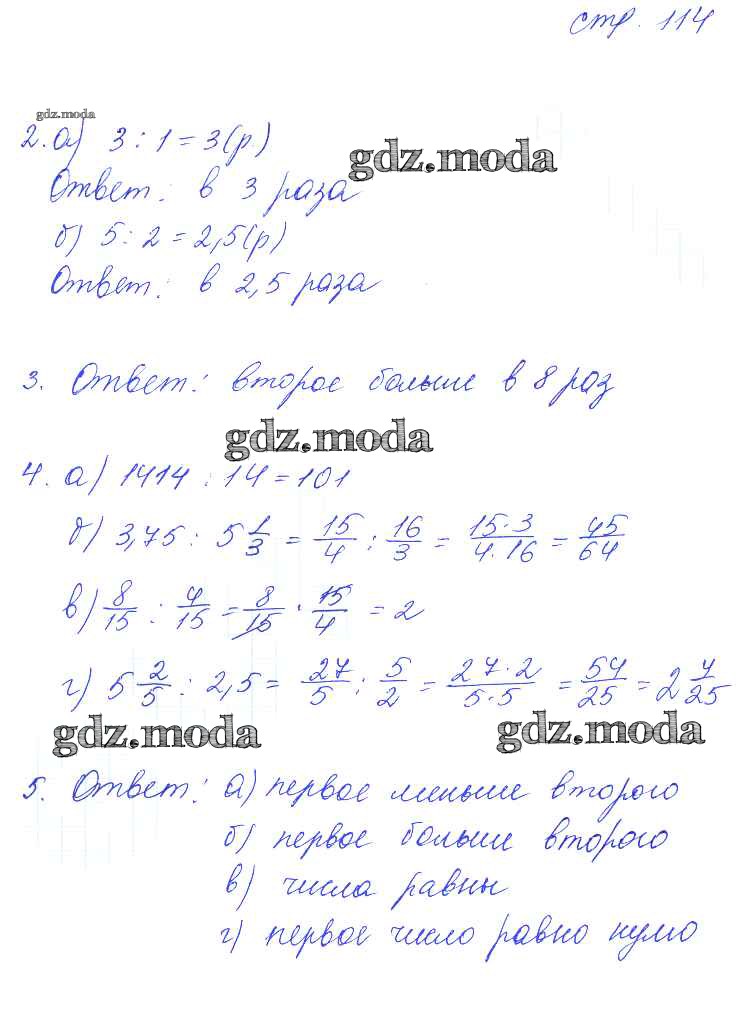 стр. 114
gdz.moda
2. а) 3 : 1 = 3 (р)
gdz.moda
Ответ: в 3 раза
б) 5 : 2 = 2,5 (р)
Ответ: в 2,5 раза
3. Ответ: второе больше в 8 раз
gdz.moda
4. а) 1414 : 14 = 101
б) 3,75 : 5 1/3 = 15/4 : 16/3 = 15·3/4·16 = 45/64
в) 8/15 : 4/15 = 8/15 · 15/4 = 2
г) 5 2/5 : 2,5 = 27/5 : 5/2 = 27·2/5·5 = 54/25 = 2 4/25
gdz.moda gdz.moda
5. Ответ: а) первое меньше второго
б) первое больше второго
в) числа равны
г) первое число равно нулю